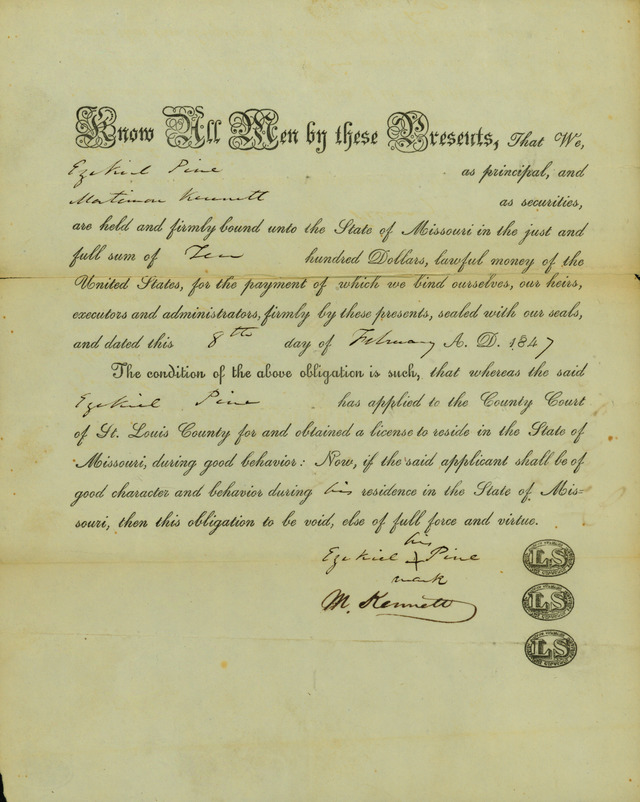 Know All Men by these Presents, That We,
Ezekiel Pine as principal, and
Mortimer Kennett as securities,
are held and firmly bound unto the State of Missouri in the just and
full sum of Ten hundred Dollars, lawful money of the
United States, for the payment of which we bind ourselves, our heirs,
executors and administrators, firmly by these presents, sealed with our seals,
and dated this 8th day of February A. D. 1847
The condition of the above obligation is such, that whereas the said
Ezekiel Pine has applied to the County Court
of St. Louis County for and obtained a license to reside in the State of
Missouri, during good behavior: Now, if the said applicant shall be of
good character and behavior during his residence in the State of Mis=
souri, then this obligation to be void, else of full force and virtue.
his
Ezekiel + Pine
mark
LS
M. Kennett
LS
LS